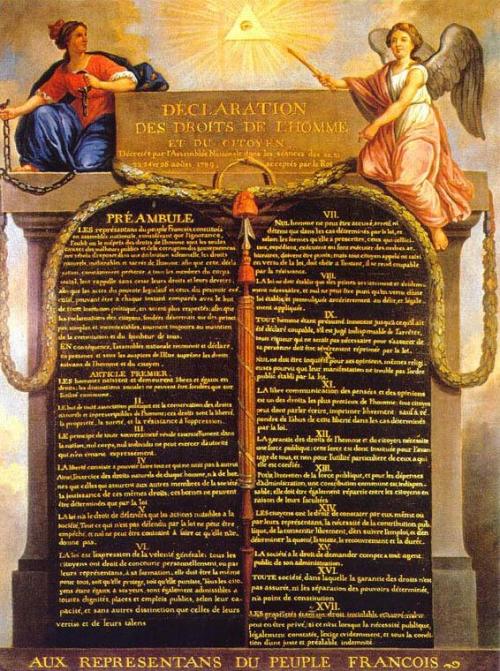 DÉCLARATION
DES DROITS DE L'HOMME
ET DU CITOYEN
Décretés par l'Assemblée Nationale dans les séances des 20, 21
23, 24 et 26 aoust 1789, acceptés par le Roi
PRÉAMBULE
LES représentans du peuple François, constitués
en assemblée nationale, considérant que l'ignorance,
l'oubli ou le mépris des droits de l'homme sont les seules
causes des malheurs publics et de la corruption des gouvernemens
ont résolu d'exposer dans une déclaration solemnelle, les droits
naturels, inaliénables et sacrés de l'homme; afin que cette décla-
ration, constamment présente a tous les membres du corps
social, leur rappelle sans cesse leurs droits et leurs devoirs;
afin que les actes du pouvoir législatif et ceux du pouvoir exé-
cutif, pouvant être à chaque instant comparés avec le but
de toute institution politique, en soient plus respectés; afin que
les réclamations des citoyens, fondées désormais sur des princi-
pes simples et incontestables, tournent toujours au maintien
de la constitution et du bonheur de tous.
EN conséquence, l'assemblée nationale reconnoit et déclare
en présence et sous les auspices de l'Etre suprême les droits
suivans de l'homme et du citoyen.
ARTICLE PREMIER.
LES hommes naissent et demeurent libres et égaux en
droits; les distinctions sociales ne peuvent être fondées que sur
l'utilité commune.
II.
LE but de toute association politique est la conservation des droits
naturels et imprescriptibles de l'homme; ces droits sont la liberté,
la propriété, la sureté, et la résistance à l'oppression.
LE principe de toute souveraineté réside essentiellement dans
la nation, nul corps, nul individu ne peut exercer d'autorité
qui n'en émane expressément.
IV.
LA liberté consiste à pouvoir faire tout ce qui ne nuit pas à autrui
Ainsi, l'exercice des droits naturels de chaque homme, n'a de bor-
nes que celles qui assurent aux autres membres de la société
la jouissance de ces mêmes droits; ces bornes ne peuvent
être déterminées que par la loi
V.
LA loi n'a le droit de défendre que les actions nuisibles à la
société. Tout ce qui n'est pas défendu par la loi ne peut être
empêché, et nul ne peut être contraint à faire ce qu'elle n'or-
donne pas.
VI.
LA loi est l'expression de la volonté générale; tous les
citoyens ont droit de concourir personnellement, ou par
leurs représentans, à sa formation; elle doit être la même
pour tous, soit qu'elle protege, soit qu'elle punisse. Tous les cito-
yens étant égaux à ses yeux, sont également admissibles à
toutes dignités, places et emplois publics, selon leur ca-
pacité, et sans autres distinction que celles de leurs
vertus et de leurs talens
VII.
NUL homme ne peut être accusé, arrêté, ni
détenu que dans les cas déterminés par la loi, et
selon les formes qu'elle a prescrites, ceux qui sollici-
tent, expédient, exécutent ou font exécuter des ordres ar-
bitraires, doivent être punis; mais tout citoyen appelé ou saisi
en vertu de la loi, doit obéir à l'instant, il se rend coupable
par la résistance.
VIII.
LA loi ne doit établir que des peines strictement et évidem-
ment nécessaires, et nul ne peut être puni qu'en vertu d'une
loi établie et promulguée antérieurement au délit, et légale-
ment appliquée.
IX.
TOUT homme étant présumé innocent jusqu'à ce qu'il ait
été déclaré coupable, s'il est jugé indispensable de l'arrêter,
toute rigueur qui ne serait pas nécessaire pour s'assurer de
sa personne doit être sévèrement réprimée par la loi.
X.
NUL ne doit être inquiété pour ses opinions, mêmes religi-
euses pourvu que leur manifestation ne trouble pas l'ordre
public établi par la loi.
XI.
LA libre communication des pensées et des opinions
est un des droits les plus précieux de l'homme; tout citoyen
peut donc parler, écrire, imprimer librement: sauf à ré-
pondre de l'abus de cette liberté dans les cas déterminés
par la loi.
XII.
LA garantie des droits de l'homme et du citoyen nécessite
une force publique; cette force est donc instituée pour l'avan-
tage de tous, et non pour l'utilité particuliere de ceux a qui
elle est confiée.
XIII.
Pour l'entretien de la force publique, et pour les dépenses
d'administration, une contribution commune est indispen-
sable; elle doit être également répartie entre les citoyens en
raison de leurs facultés.
XIV.
LES citoyens ont le droit de constater par eux même ou
par leurs représentans, la nécessité de la contribution pub-
lique, de la consentir librement, d'en suivre l'emploi, et d'en
déterminer la quotité, l'assiette, le recouvrement et la durée.
XV.
LA société a le droit de demander compte a tout agent
public de son administration.
XVI.
TOUTE société, dans laquelle la garantie des droits n'est
pas assurée, ni la séparation des pouvoirs déterminée,
n'a point de constitution.
XVII.
LES propriétés étant un droit inviolable et sacré, nul ne
peut en être privé, si ce n'est lorsque la nécessité publique,
légalement constatée, l'exige évidemment, et sous la condi-
tion d'une juste et préalable indemnité.
AUX REPRESENTANS DU PEUPLE FRANCOIS